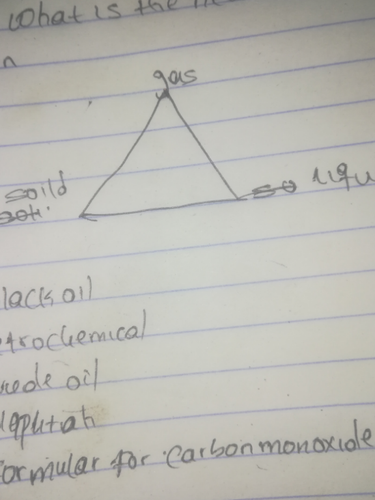 What is the
n
gas
soild
liqu
lack oil
etrochemical
rude oil
formular for carbonmonoxide